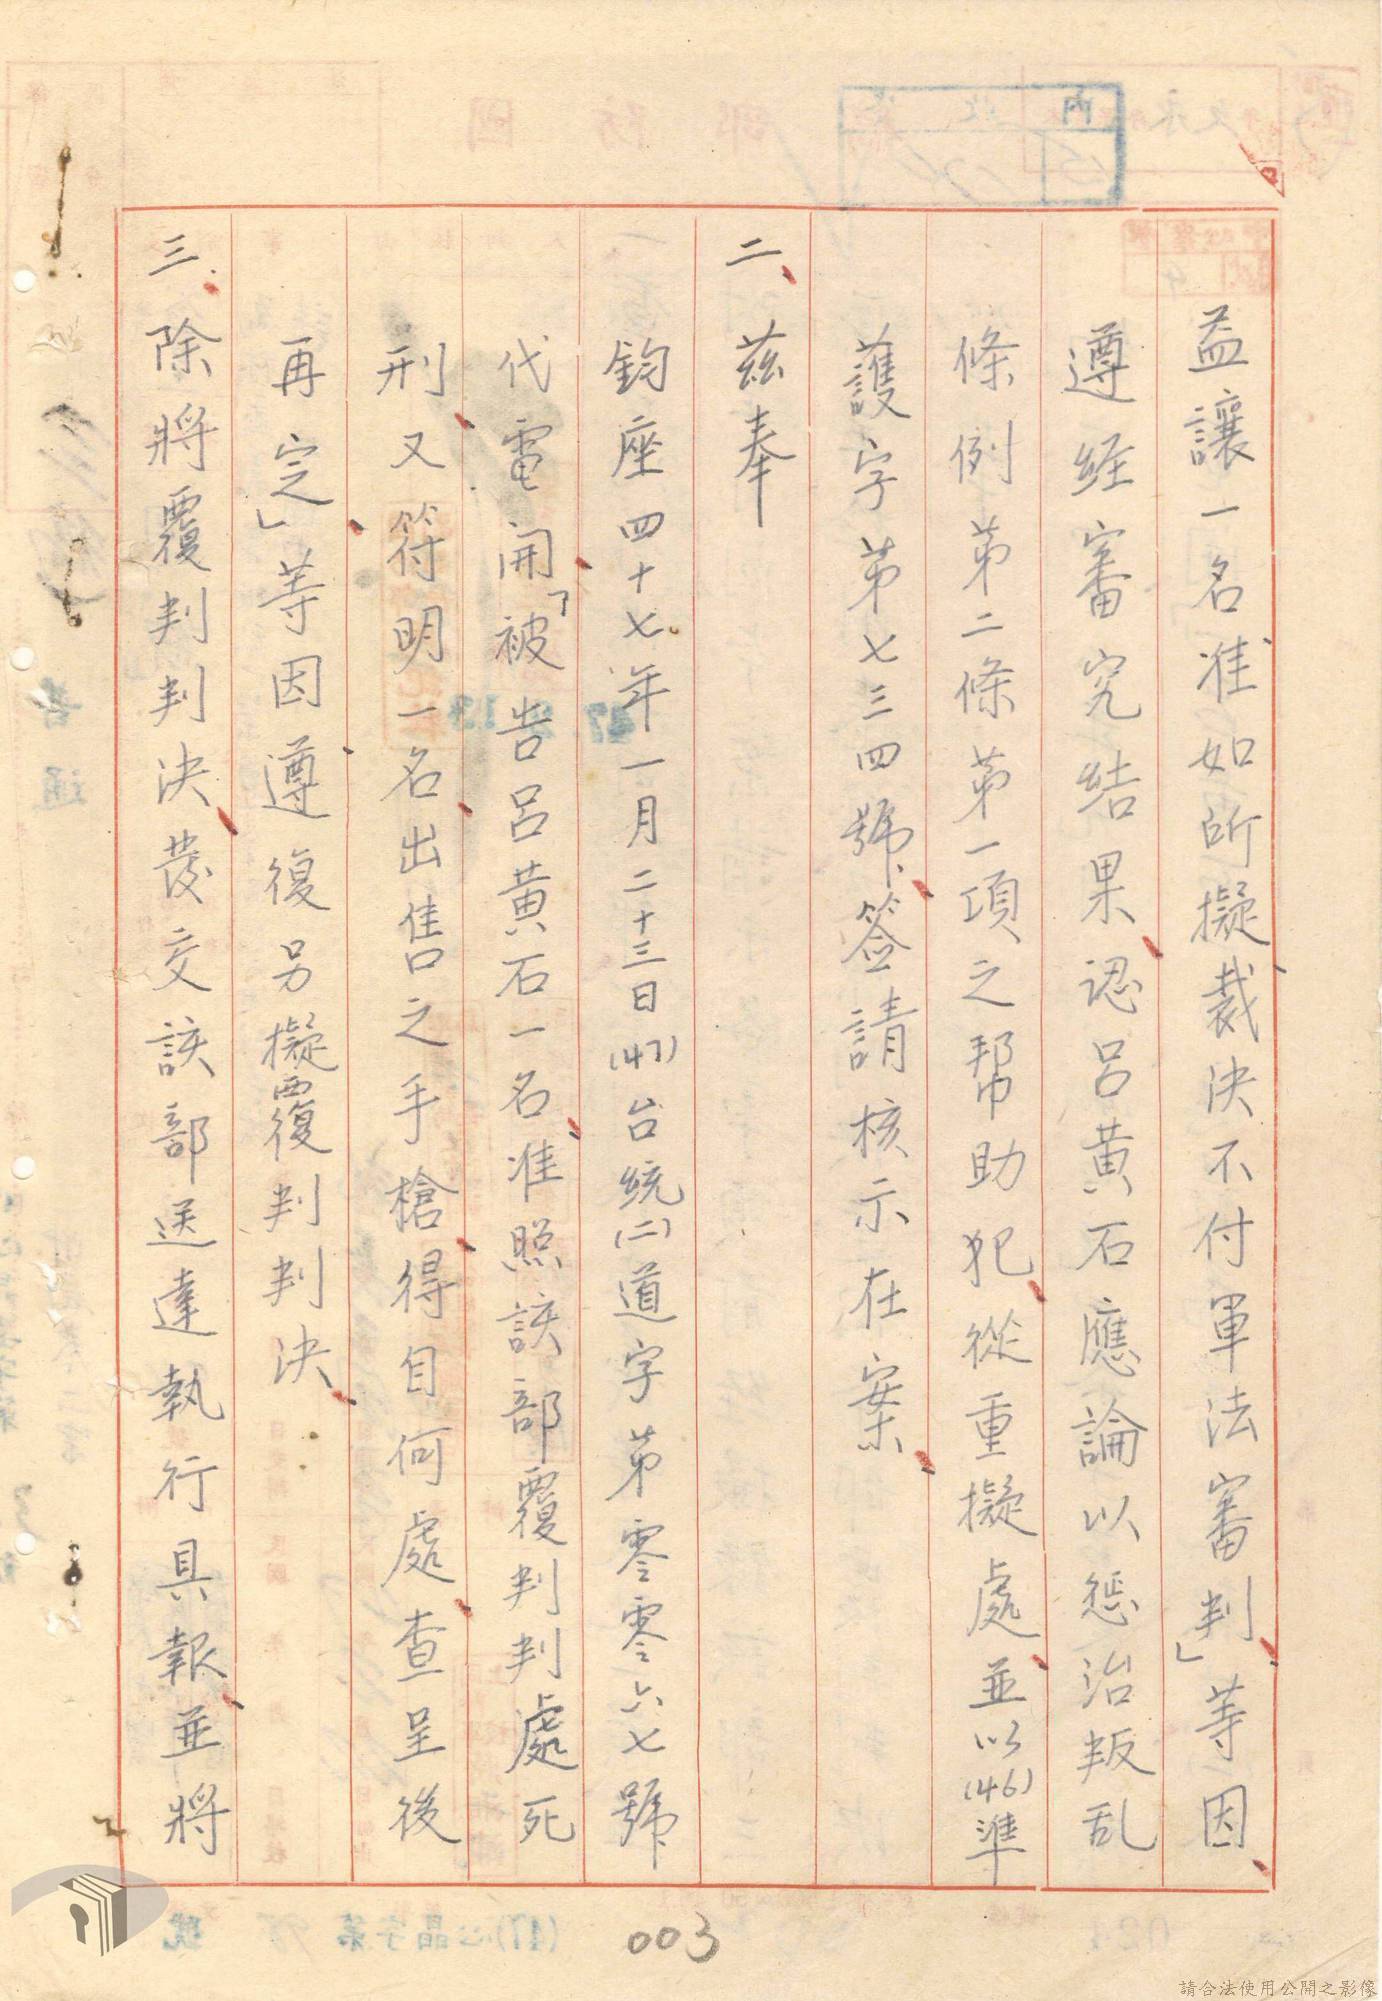 益讓一名准如所擬裁決不付軍法審判」等因
遵经審究結果認呂黃石應論以惩治叛乱
條例第二條第一項之幇助犯從重擬處並以(46)準
護字第七三四號簽請核示在案
二、茲奉
鈞座四十七年一月二十三日(47)台統(二)道字第零零六七號
代電開「被告呂黃石一名准照該部覆判判處死
刑又符明一名出售之手槍得自何處查呈後
再定」等因遵復另擬覆判判決
三、除將覆判判決發交該部送達執行具報並將
003
內 收
普通
(47)心晶字第 號
請合法使用公開之影像